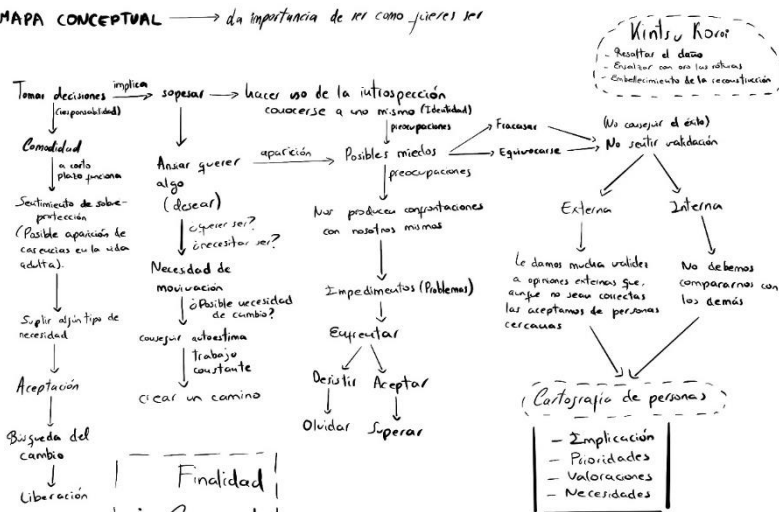 MAPA CONCEPTUAL → da importancia de ser como quieres ser
Kintsu Koroi
- Resaltar el daño
- Ensalzar con oro las roturas
- Embellecimiento de la reconstrucción
Tomar decisiones implica sopesar → hacer uso de la introspección
(responsabilidad)
conocerse a uno mismo (Identidad)
preocupaciones
Comodidad
a corto
plazo funciona
Sentimiento de sobre-
protección
(Posible aparición de
carencias en la vida
adulta).
Suplir algún tipo de
necesidad
Aceptación
Búsqueda del
cambio
Liberación
Ansiar querer
algo
(desear)
¿querer ser?
¿necesitar ser?
Necesdad de
movivación
¿Posible necesidad
de cambio?
conseguir autoestima
trabajo
constante
crear un camino
aparición
Posibles miedos
Fracasar
Equivocarse
preocupaciones
Nos producen confrontaciones
con nosotros mismos
Impedimentos (Problemas)
Enfrentar
Desistir
Aceptar
Olvidar
Superar
(No conseguir el éxito)
No sentir validación
Externa
Interna
Le damos mucha validez
a opiniones externas que,
aunque no sean correctas
las aceptamos de personas
cercanas
No debemos
compararnos con
los demás
Cartografía de personas
- Implicación
- Prioridades
- Valoraciones
- Necesidades
Finalidad